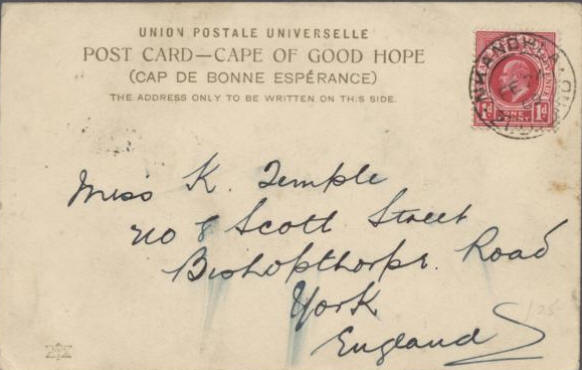 UNION POSTALE UNIVERSELLE
POST CARD—CAPE OF GOOD HOPE
(CAP DE BONNE ESPÉRANCE)
THE ADDRESS ONLY TO BE WRITTEN ON THIS SIDE.
NKANDHLA
1d ONE PENNY 1d
Miss K. Temple
no 8 Scott Street
Bishopthorpe Road
York
England